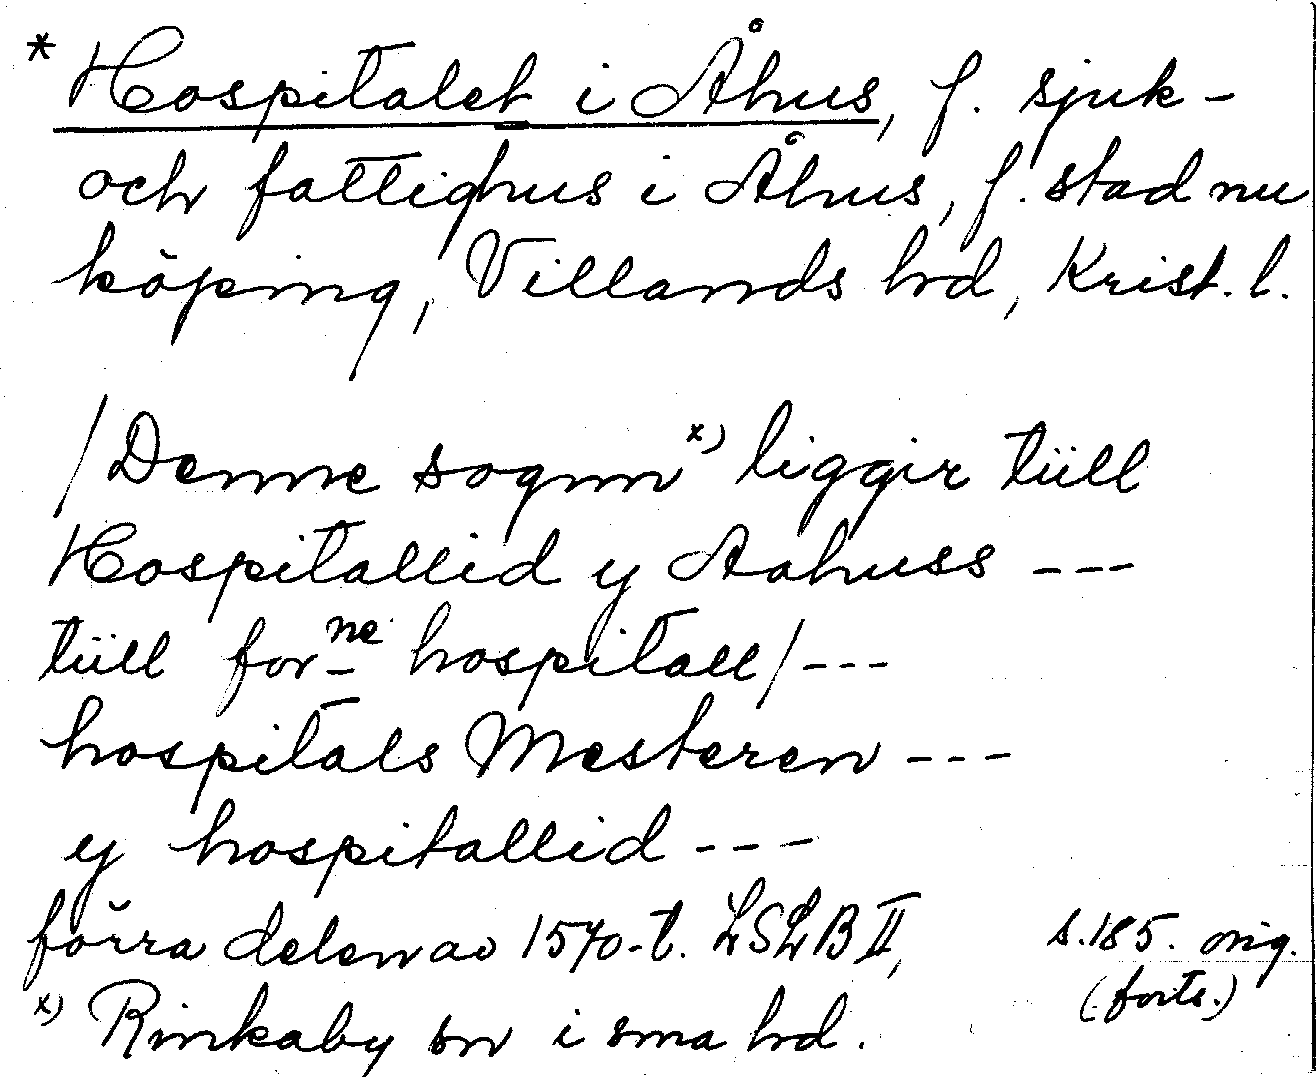 * Hospitalet i Åhus, f. sjuk-
och fattighus i Åhus, f. stad nu
köping, Villands hd, Krist. l.
/Denne sognn x) liggir tüll
Hospitallid y Aahuss ---
tüll for ne hospitall/---
hospitals Mesteren ---
y hospitallid ---
förra delen av 1570-t. LSLB II, s.185. orig.
(forts.)
x) Rinkaby sn i sma hd.